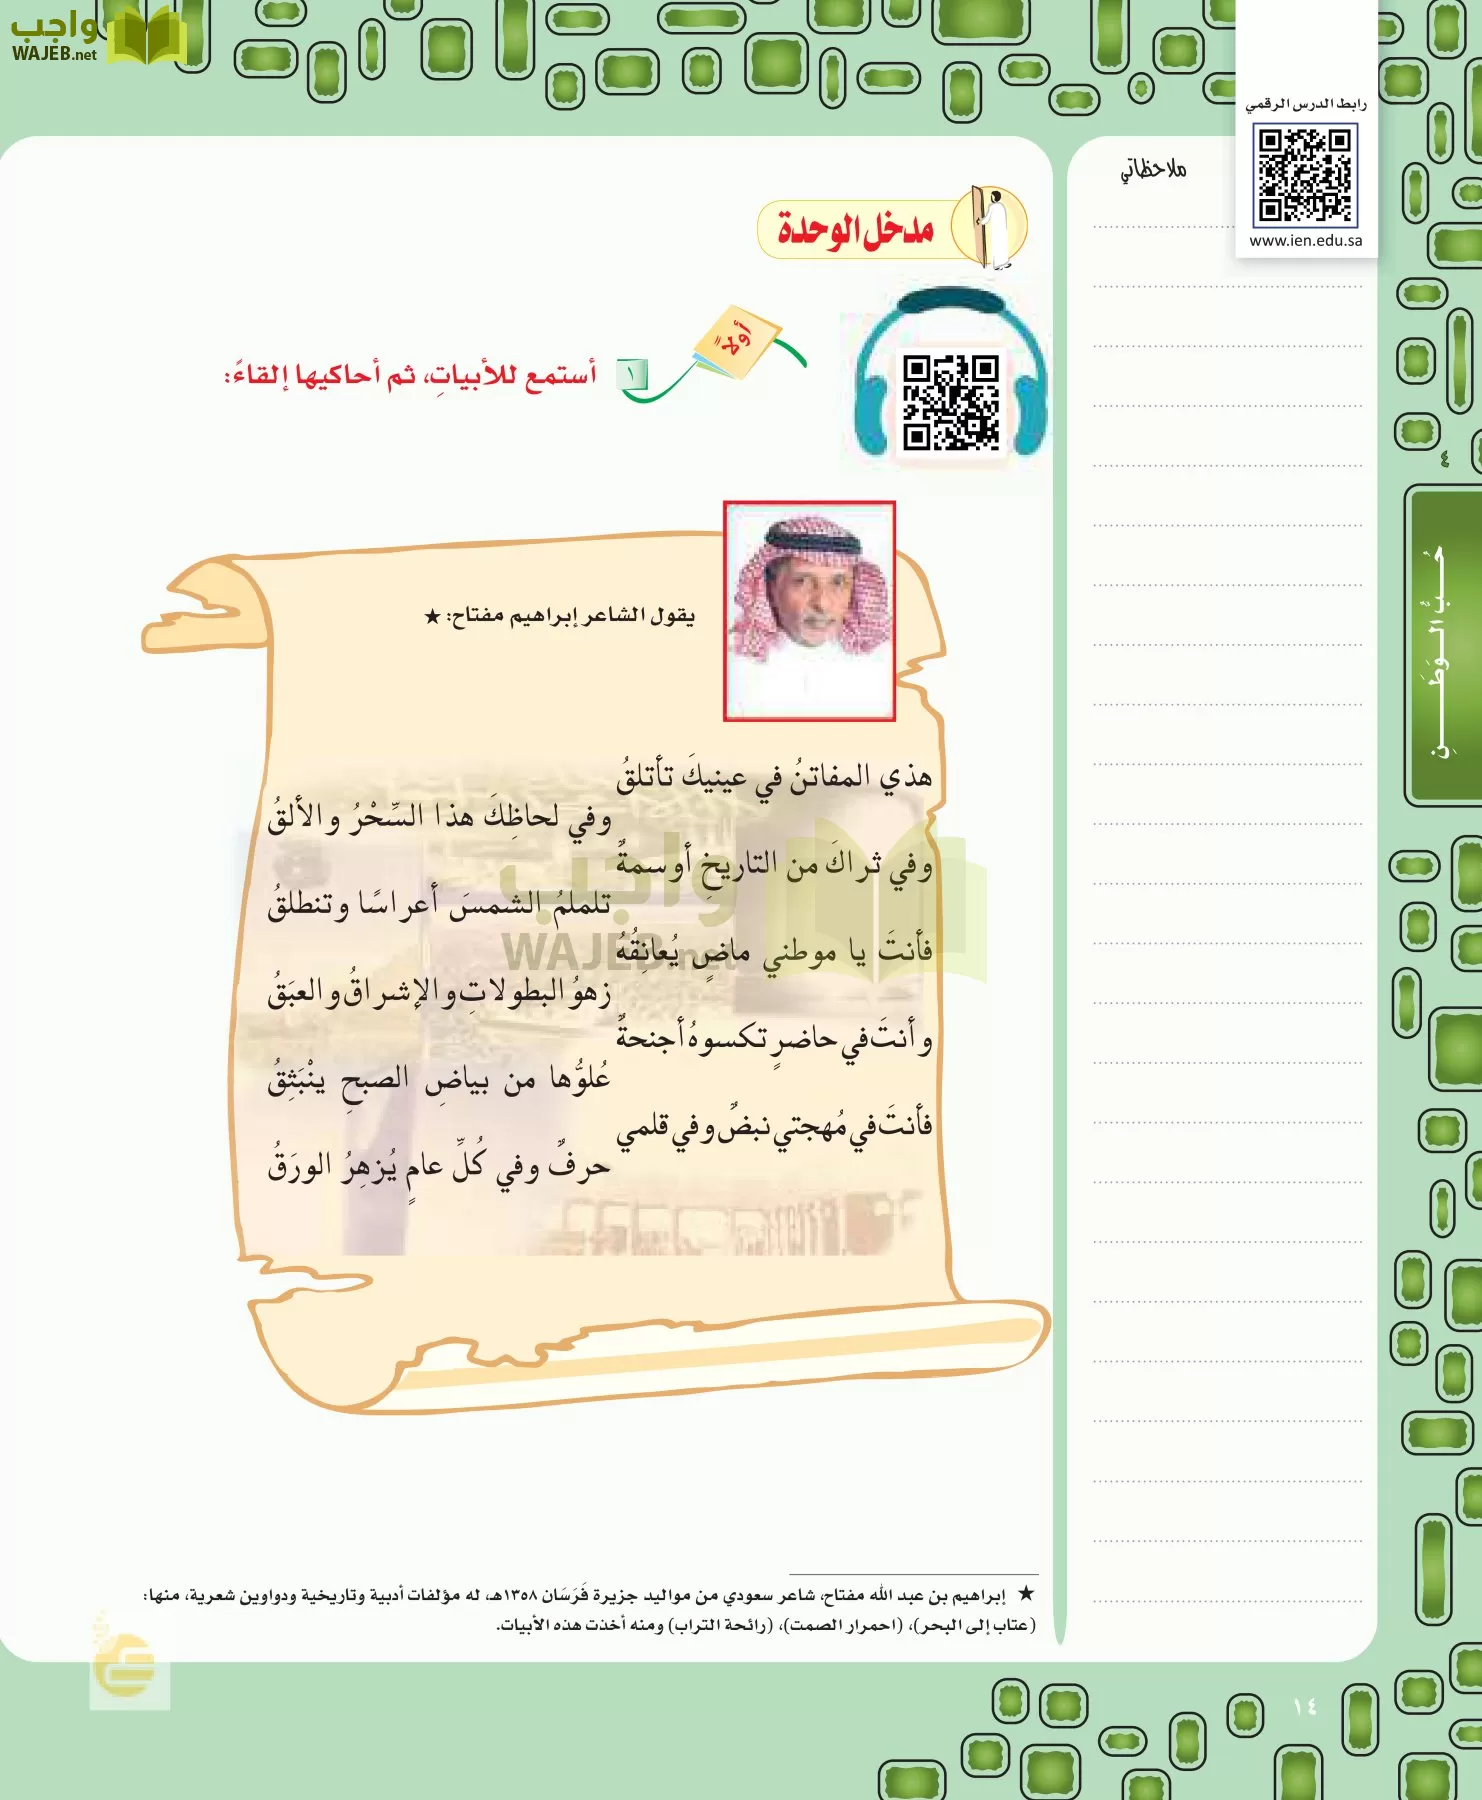 واجب
WAJEB.net
رابط الدرس الرقمي
www.ien.edu.sa
ملاحظاتي
مدخل الوحدة
أولاً
١ أستمع للأبياتِ، ثم أحاكيها إلقاءً:
يقول الشاعر إبراهيم مفتاح: ★
هذي المفاتنُ في عينيكَ تأتلقُ
وفي لحاظِكَ هذا السِّحْرُ والألقُ
وفي ثراكَ من التاريخِ أوسمةٌ
تلملمُ الشمسَ أعراسًا وتنطلقُ
فأنتَ يا موطني ماضٍ يُعانِقُهُ
زهوُ البطولاتِ والإشراقُ والعبَقُ
وأنتَ في حاضرٍ تكسوهُ أجنحةٌ
عُلوُّها من بياضِ الصبحِ ينْبَثِقُ
فأنتَ في مُهجتي نبضٌ وفي قلمي
حرفٌ وفي كُلِّ عامٍ يُزهِرُ الورَقُ
واجب
WAJEB.net
★ إبراهيم بن عبد الله مفتاح، شاعر سعودي من مواليد جزيرة فَرَسَان ١٣٥٨هـ، له مؤلفات أدبية وتاريخية ودواوين شعرية، منها:
(عتاب إلى البحر)، (احمرار الصمت)، (رائحة التراب) ومنه أخذت هذه الأبيات.
٤
حُــبُّ الــوَطَــــنِ
١٤